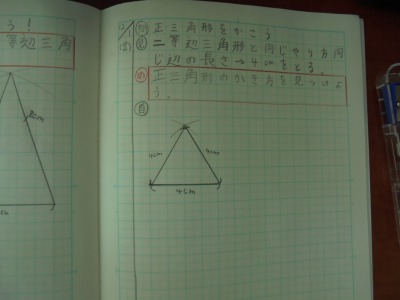 う！
等辺三角
2/1
問 正三角形をかこう
見 二等辺三角形と同じやり方同
じ辺の長さ→4cmをとる。
め 正三角形のかき方を見つけよ
う。
自
4cm
4cm
4cm